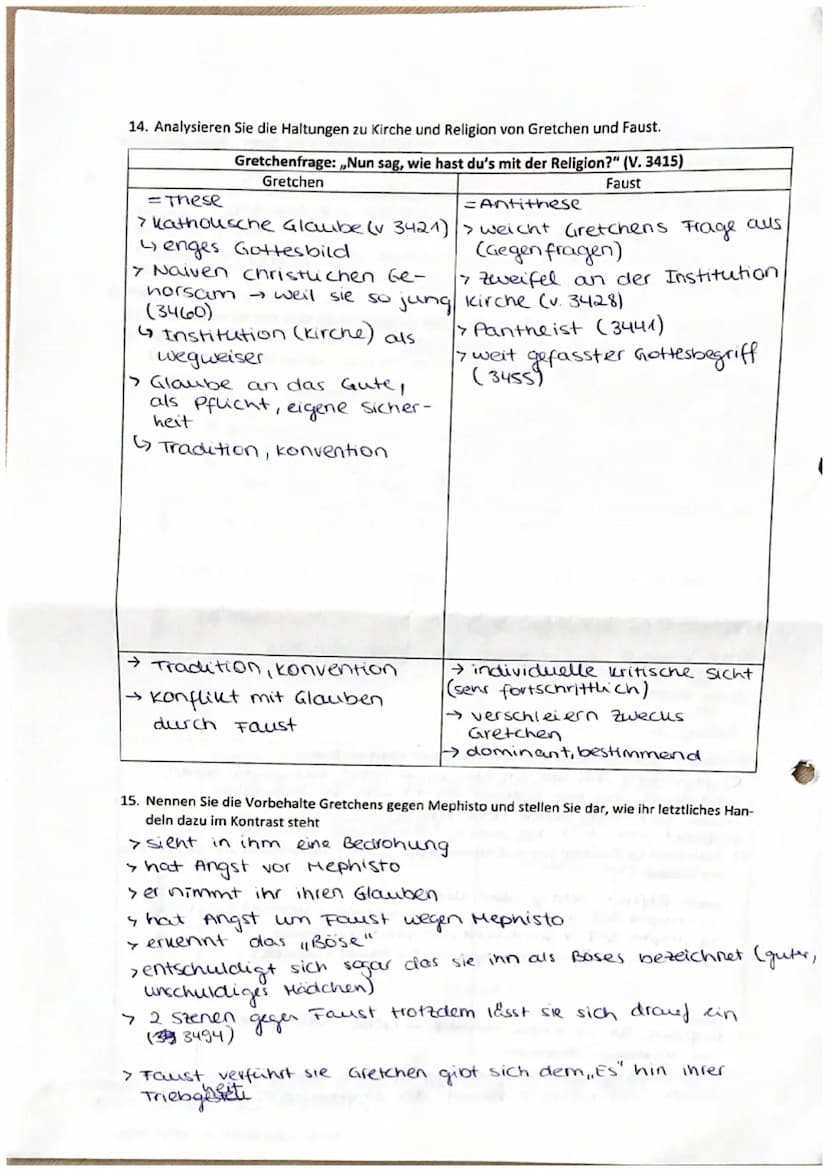 14. Analysieren Sie die Haltungen zu Kirche und Religion von Gretchen und Faust.
Gretchenfrage: „Nun sag, wie hast du's mit der Religion?" (V. 3415)
Gretchen
= These
> Katholische Glaube (v 3421)
↳ enges Gottesbild
> Naiven christlichen Ge-
horsam → weil sie so jung
(3460)
↳ Institution (Kirche) als
Wegweiser
> Glaube an das Gute,
als Pflicht, eigene Sicher-
heit
↳ Tradition, Konvention
Faust
= Antithese
> weicht Gretchens Frage aus
(Gegenfragen)
> Zweifel an der Institution
Kirche (v. 3428)
> Pantheist (3441)
> weit gefasster Gottesbegriff
(3455)
→ Tradition, Konvention
→ Konflikt mit Glauben
durch Faust
→ individuelle kritische Sicht
(sehr fortschrittlich)
→ verschleiern zwecks
Gretchen
→ dominant, bestimmend
15. Nennen Sie die Vorbehalte Gretchens gegen Mephisto und stellen Sie dar, wie ihr letztliches Han-
deln dazu im Kontrast steht
> sieht in ihm eine Bedrohung
> hat Angst vor Mephisto
> er nimmt ihr ihren Glauben
> hat Angst um Faust wegen Mephisto
> erkennt das „Böse"
> entschuldigt sich sogar das sie ihn als Böses bezeichnet (guter,
unschuldiges Mädchen)
> 2 Szenen gegen Faust trotzdem lässt sie sich drauf ein
(3494)
> Faust verführt sie Gretchen gibt sich dem „Es" hin ihrer